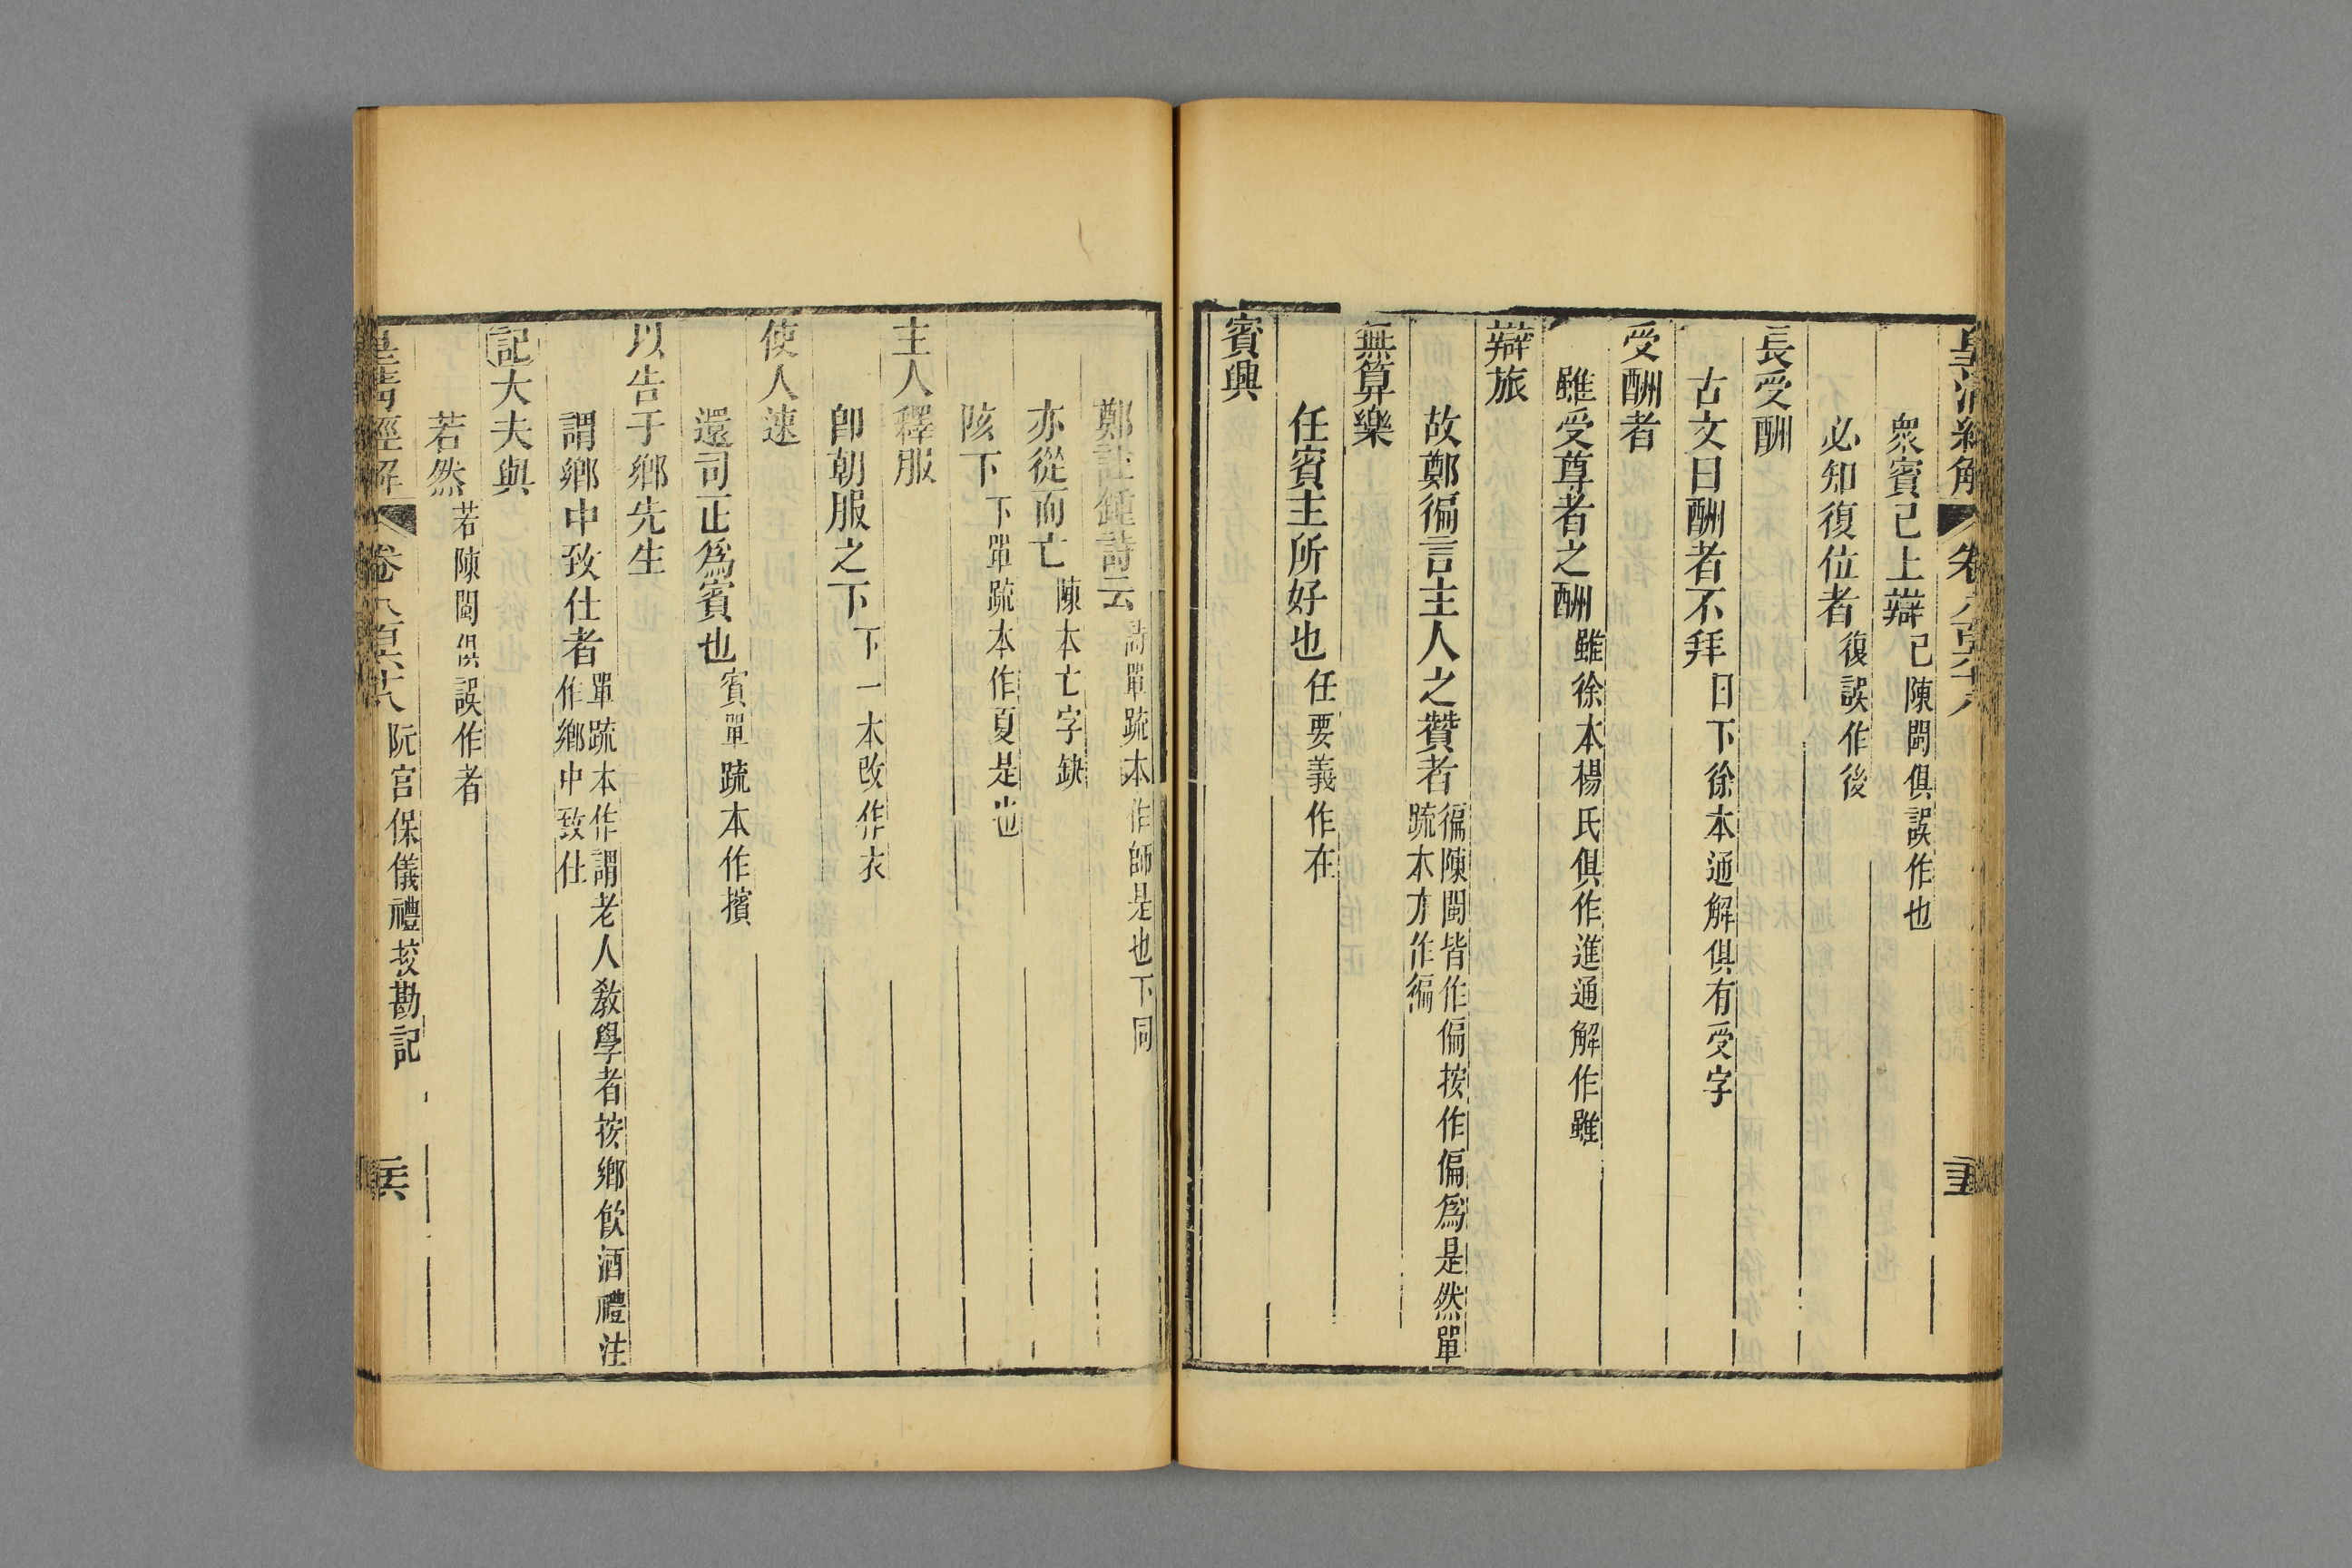 皇清經解 卷八百六十八
衆賓已上辯已陳閩俱誤作也
必知復位者復誤作後
長受酬
古文曰酬者不拜曰下徐本通解俱有受字
受酬者
雖受尊者之酬雖徐本楊氏俱作進通解作雖
辯旅
故鄭徧言主人之贊者徧陳閩皆作偏按作偏爲是然單疏本亦作徧
無算樂
任賓主所好也任要義作在
賓興
鄭註鍾詩云詩單疏本作師是也下同
亦從而亡陳本亡字缺
陔下下單疏本作夏是也
主人釋服
卽朝服之下下一本改作衣
使人速
還司正爲賓也賓單疏本作擯
以告于鄉先生
謂鄉中致仕者單疏本作謂老人敎學者按鄉飮酒禮注作鄉中致仕
記大夫與
若然若陳閩俱誤作者
皇清經解 卷八百六十八 阮宫保儀禮挍勘記 二十六